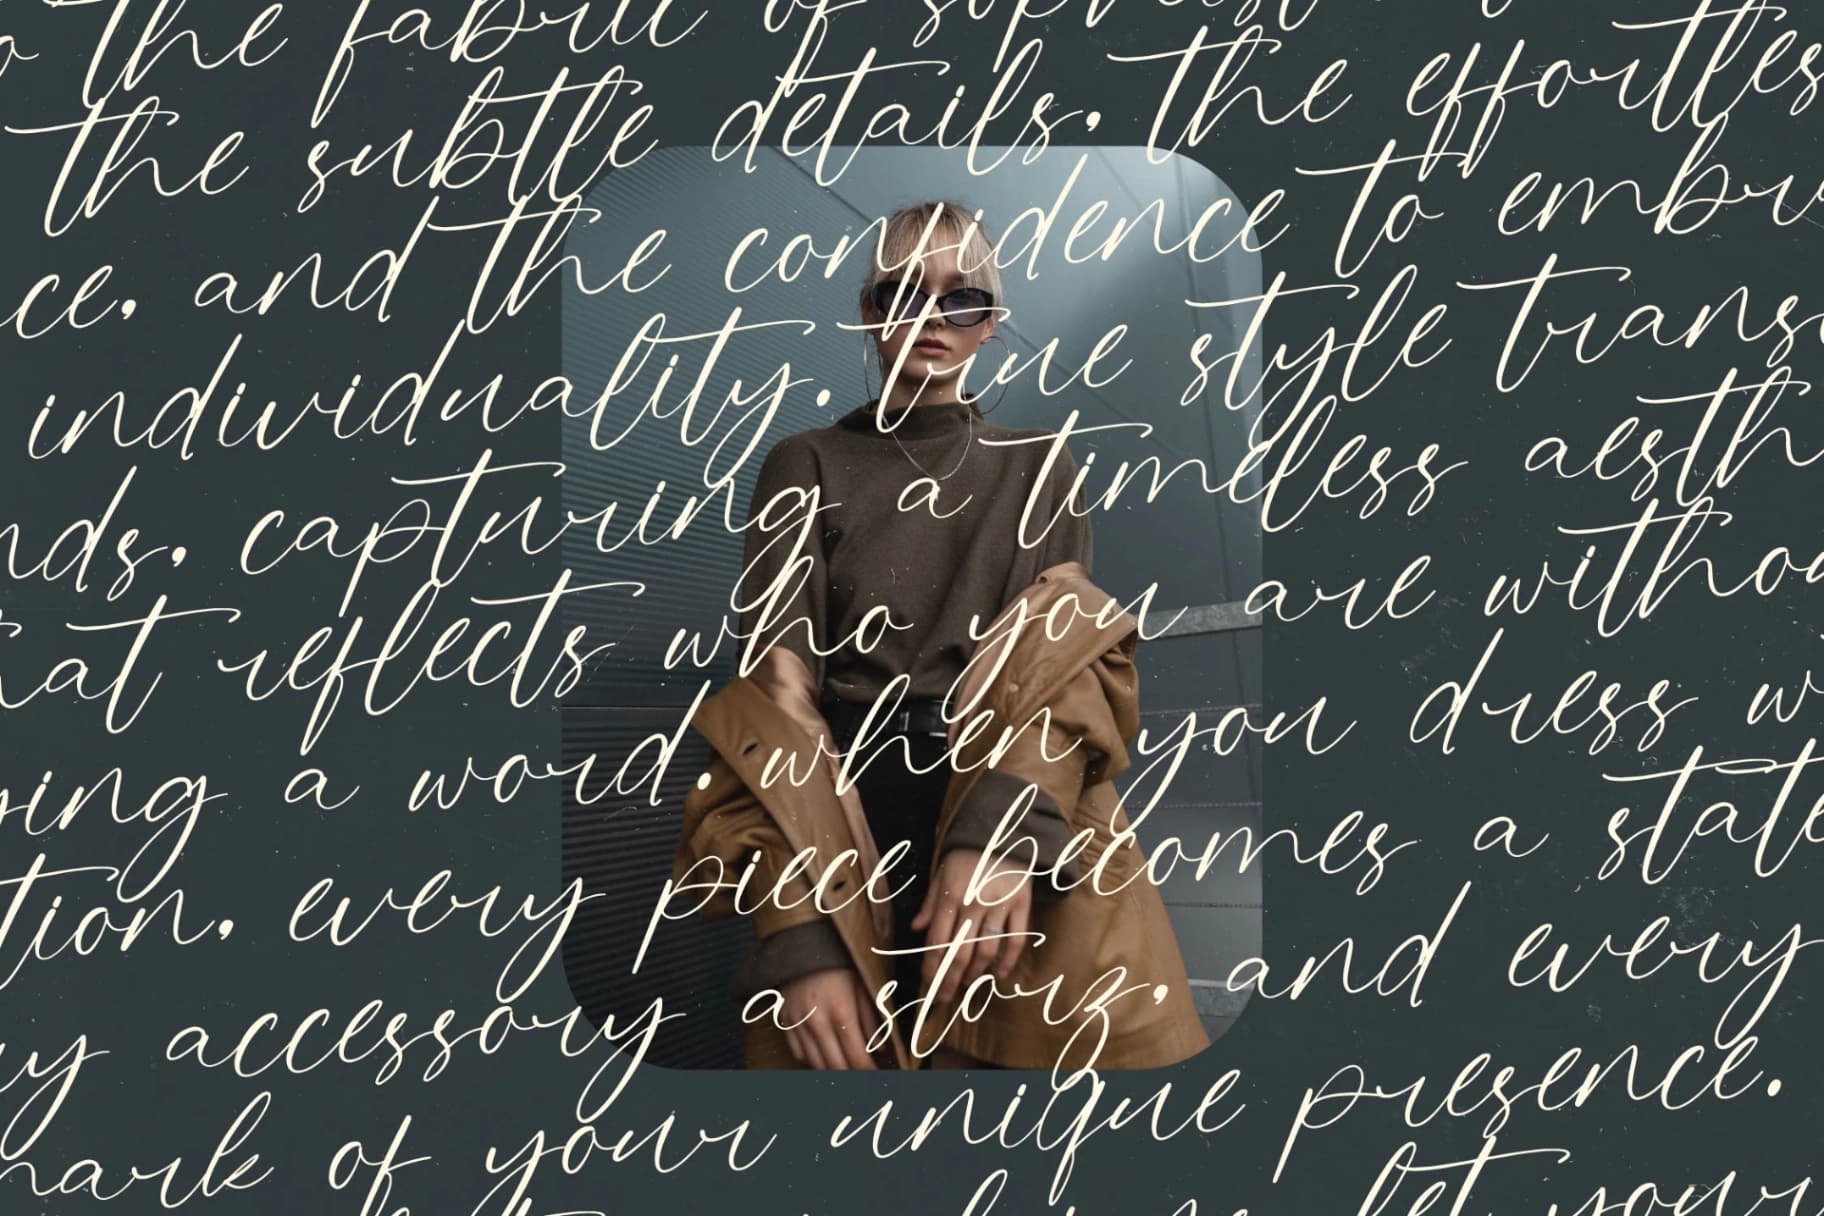 the fabric of
the subtle details, the effortles
ce, and the confidence to embra
individuality. true style trans
nds, capturing a timeless aesth
hat reflects who you are withou
ying a word. when you dress wi
tion, every piece becomes a state
ry accessory a storz, and every
mark of your unique presence.
let your